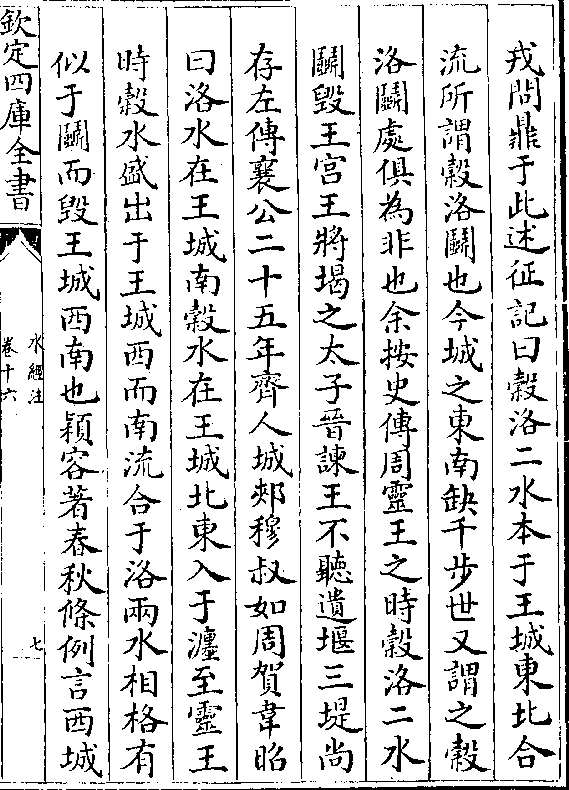 戎問鼎于此述征記曰穀洛二水本于王城東北合
流所謂穀洛鬬也今城之東南缺千步世又謂之穀
洛鬬處俱為非也余按史傳周靈王之時穀洛二水
鬬毀王宫王將堨之太子晉諫王不聽遺堰三堤尚
存左傳襄公二十五年齊人城郟穆叔如周賀韋昭
曰洛水在王城南穀水在王城北東入于瀍至靈王
時穀水盛出于王城西而南流合于洛兩水相格有
似于鬬而毀王城西南也潁容著春秋條例言西城
欽定四庫全書
水經注
卷十六
七